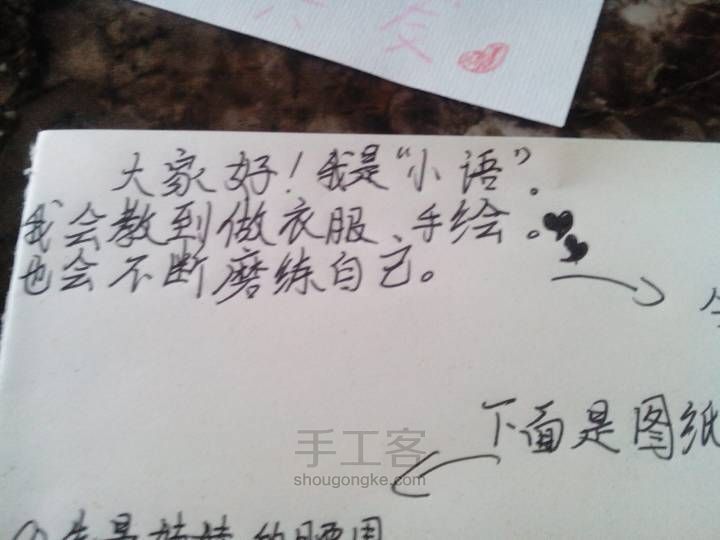 友
大家好！我是“小语”。
我会教到做衣服、手绘。
也会不断磨练自己。
下面是图纸
手工客
shougongke.com
①先量娃娃的腰围